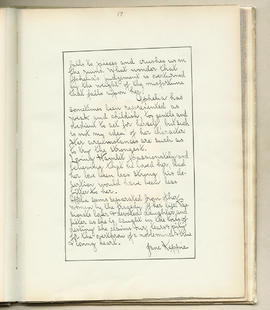 17
falls to pieces and crushes us in
the ruins. What wonder that
Ophelia's judgement is overturned
in the weight of the misfortune
that falls upon her.
Ophelia has
sometimes been represented as
weak and childish, too gentle and
to act for herself, but such
is not my idea of her character
Her circumstances are such as
to try the strongest.
Loving Hamlet passionately and
believing that he loved her, had
her love been less strong his de-
sertion would have been less
bitter to her.
She seems separated from other
women in the tragedy of her life. As
lover & devoted daughter, and
sister as she is, caught in the coils of
destiny she claims our tears & pity
for the overthrow of a noble mind & true
& loving heart.
Jane Keppie